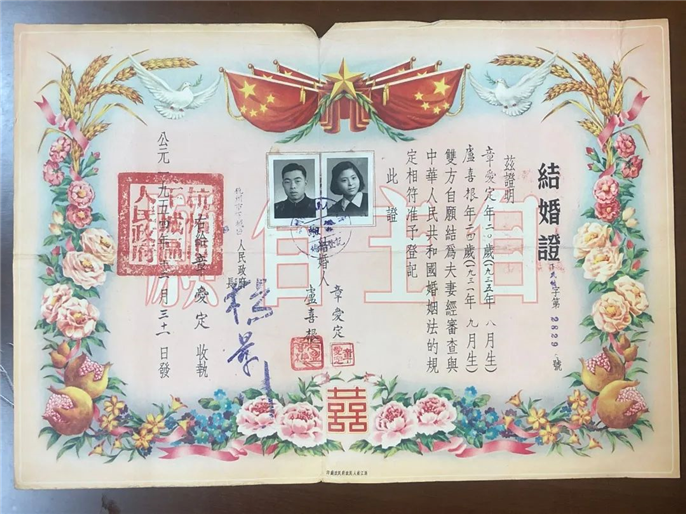 結婚證
字第2829號
茲證明
章愛定年二〇歲(一九三五年八月生)
盧喜根年二四歲(一九三一年九月生)
雙方自願結為夫妻經審查與
中華人民共和國婚姻法的規
定相符准予登記
此證
結婚人
章愛定
盧喜根
人民政府
長
右給章愛定收執
公元一九五四年十二月三十一日發
杭州市下城區人民政府
自主自
囍